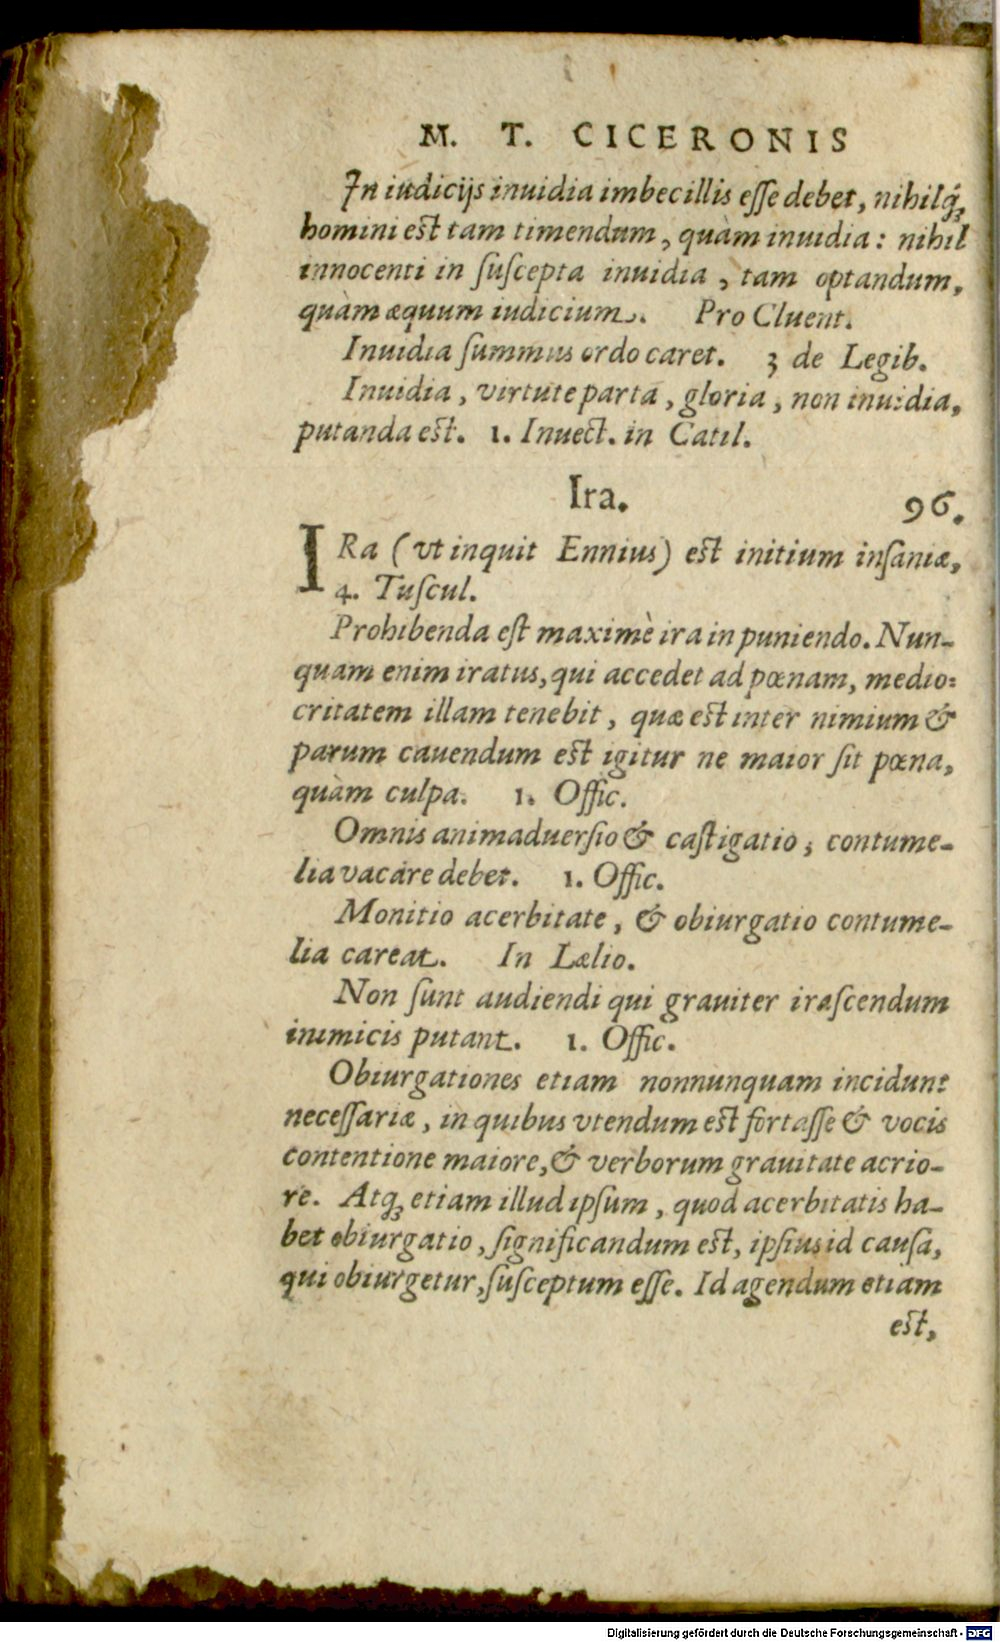 M. T. CICERONIS
In iudicijs inuidia imbecillis esse debet, nihilq́ꝫ
homini est tam timendum, quàm inuidia: nihil
innocenti in suscepta inuidia, tam optandum,
quàm æquum iudicium. Pro Cluent.
Inuidia summus ordo caret. 3 de Legib.
Inuidia, virtute parta, gloria, non inuidia,
putanda est. 1. Inuect. in Catil.
Ira. 96.
IRa (vt inquit Ennius) est initium insaniæ,
4. Tuscul.
Prohibenda est maximè ira in puniendo. Nun-
quam enim iratus, qui accedet ad pœnam, medio-
critatem illam tenebit, quæ est inter nimium &
parum cauendum est igitur ne maior sit pœna,
quàm culpa. 1. Offic.
Omnis animaduersio & castigatio, contume-
lia vacare debet. 1. Offic.
Monitio acerbitate, & obiurgatio contume-
lia careat. In Lælio.
Non sunt audiendi qui grauiter irascendum
inimicis putant. 1. Offic.
Obiurgationes etiam nonnunquam incidunt
necessariæ, in quibus vtendum est fortasse & vocis
contentione maiore, & verborum grauitate acrio-
re. Atqꝫ etiam illud ipsum, quod acerbitatis ha-
bet obiurgatio, significandum est, ipsius id causa,
qui obiurgetur, susceptum esse. Id agendum etiam
est,
Digitalisierung gefördert durch die Deutsche Forschungsgemeinschaft - DFG